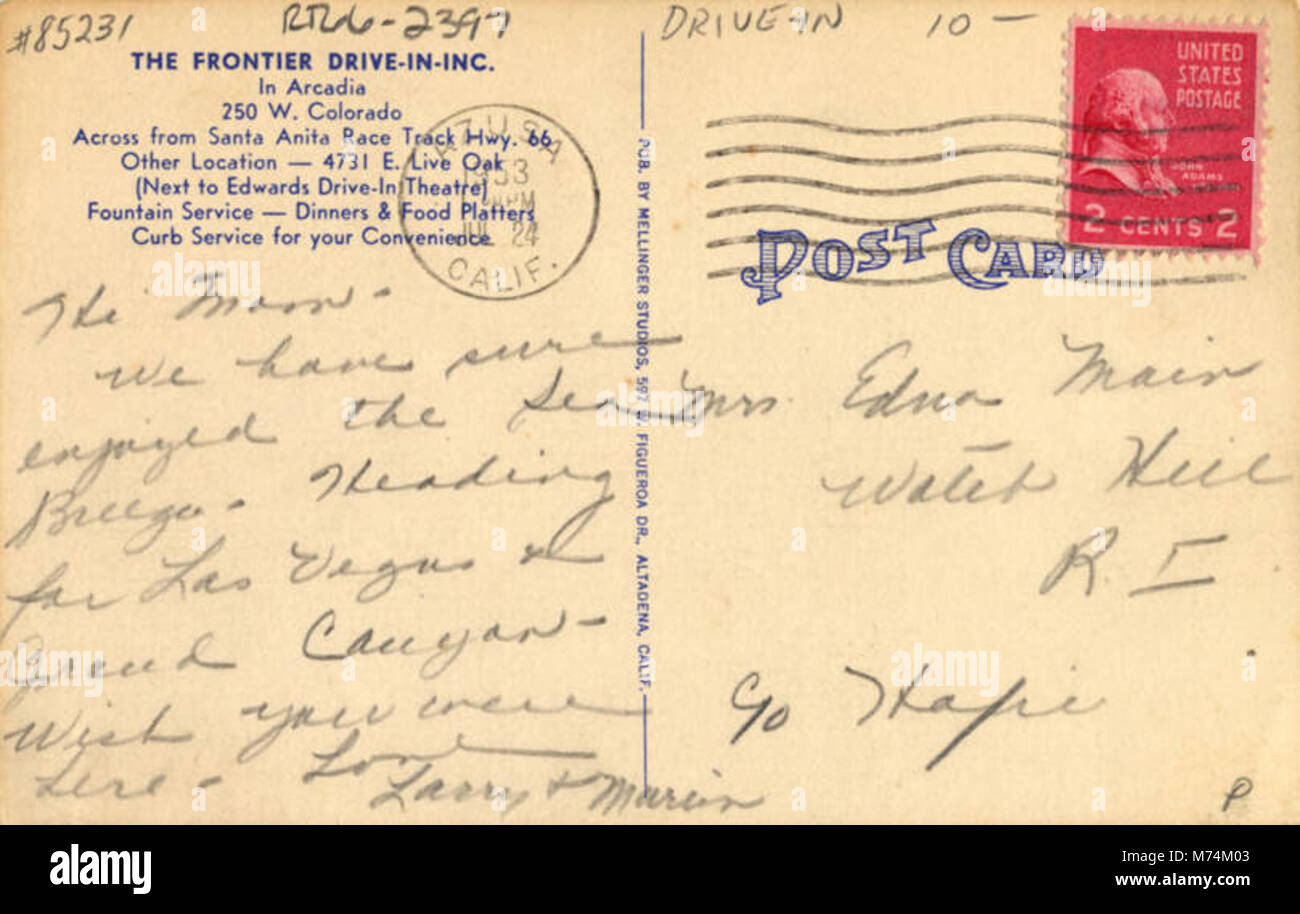 #85231
DRIVE-IN 10-
THE FRONTIER DRIVE-IN-INC.
In Arcadia
250 W. Colorado
Across from Santa Anita Race Track Hwy. 66
Other Location — 4731 E. Live Oak
(Next to Edwards Drive-In Theatre)
Fountain Service — Dinners & Food Platters
Curb Service for your Convenience
AZUSA
1953
PM
JUL 24
CALIF.
UNITED
STATES
POSTAGE
JOHN
ADAMS
2 CENTS 2
POST CARD
PUB. BY MELLINGER STUDIOS, 597 W. FIGUEROA DR., ALTADENA, CALIF.
Hi Mom -
We have sure
enjoyed the Sea
Breeze - Heading
for Las Vegas &
Grand Canyon -
Wish you were
here - Love
Larry & Marion
Mrs. Edna Main
Watch Hill
R. I
c/o
P
alamy
Image ID: M74M03
www.alamy.com